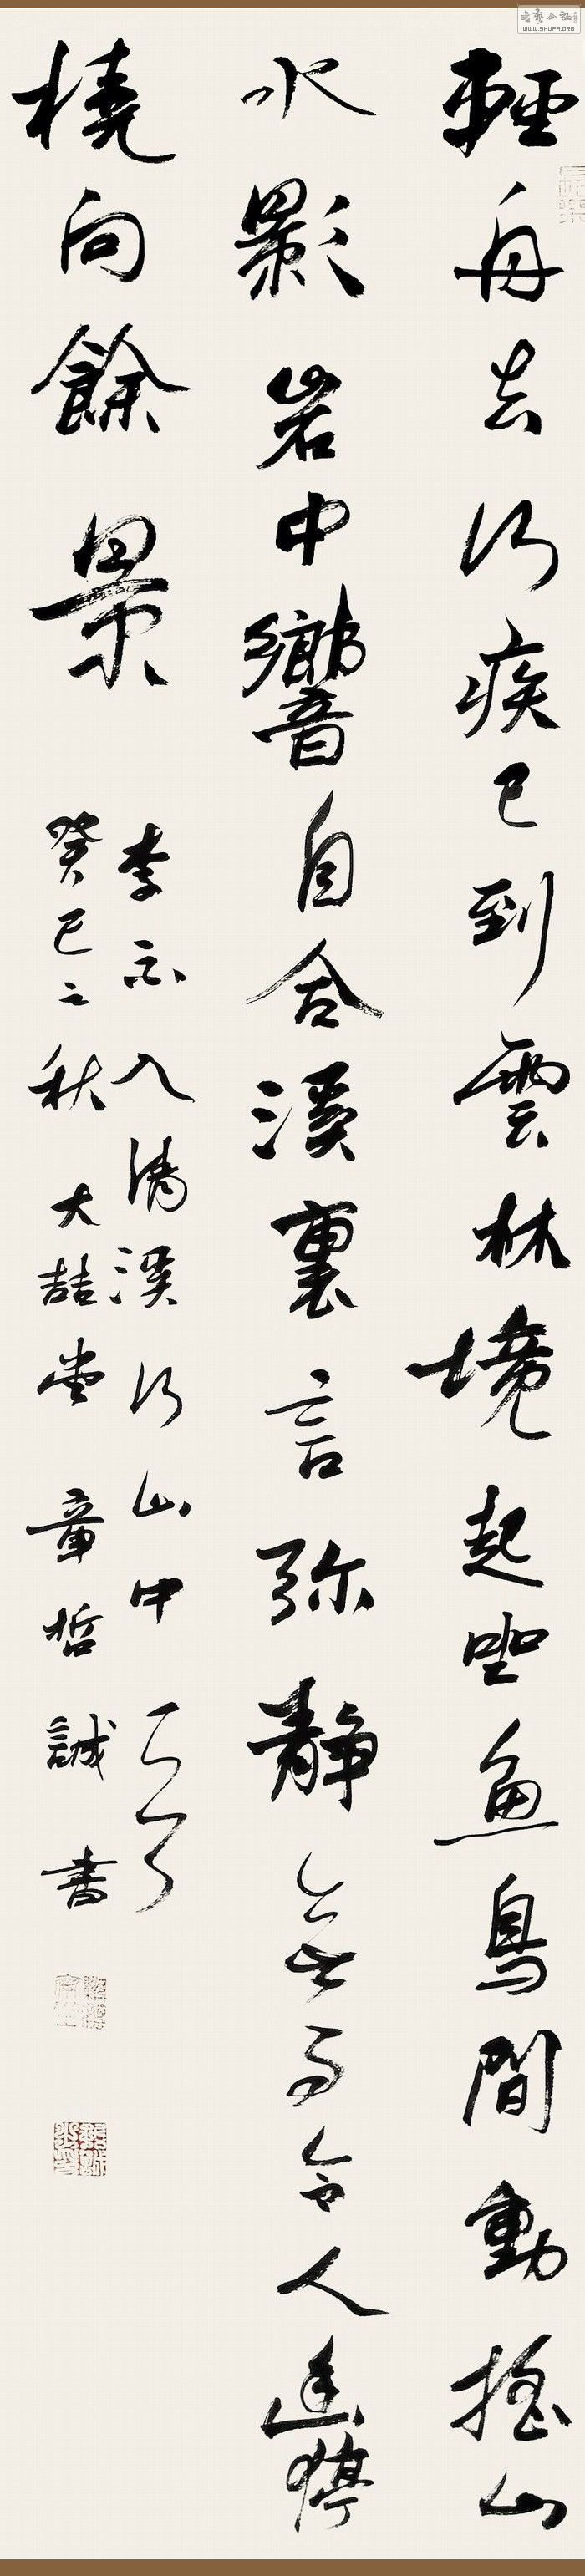 輕舟去何疾已到雲林境起坐魚鳥間動搖山
水影岩中響自合溪裏言弥静無事令人幽停
橈向餘景
李白入清溪行山中
癸巳之秋大喆堂章哲誠書
WWW.SHUFA.ORG